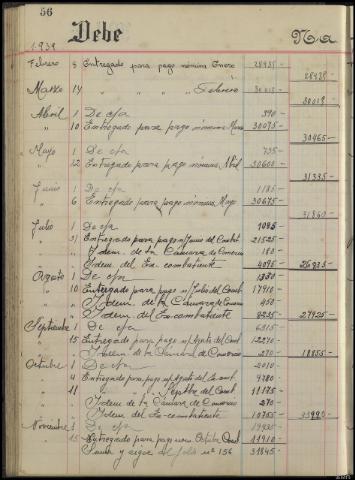 56
1.939
Debe
Na
Febrero 8 Entregado para pago nómina Enero 28438-
28438-
Marzo 14 " " " " Febrero 30018-
30018-
Abril 1 De c/a 390-
" 10 Entregado para pago nómina Marzo 30075-
30465-
Mayo 1 De c/a 735-
" 12 Entregado para pago nómina Abril 30600-
31335-
Junio 1 De c/a 1185-
" 6 Entregado para pago nómina Mayo 30675-
31860-
Julio 1 De c/a 1095-
" 31 Entregado para pago n/ Junio del Combat 21525-
" Idem de la Cámara de Comercio 180-
" Idem del Ex-combatiente 4095- 26895-
Agosto 1 De c/a 1330-
" 10 Entregado para pago n/ Julio del Comb 17910-
" Idem de la Cámara de Comercio 450-
" Idem del Ex-combatiente 27925-
Septiembre 1 De c/a 6315-
" 15 Entregado para pago n/ Agosto del Comb 12270-
" Idem de la Camara de Comercio 270- 18855-
Octubre 1 De c/a 2010-
" 4 Entregado para pago n/ Agosto del Ex-comb 9780-
" 11 " " " Sepbre del Comb 11175-
" Idem de la Cámara de Comercio 270-
" Idem del Ex-combatiente 10755-
Noviembre 1 De c/a 19935-
" 15 Entregado para pago nom Octubre Comb 11910-
Suma y sigue al folio nº 156 31845-